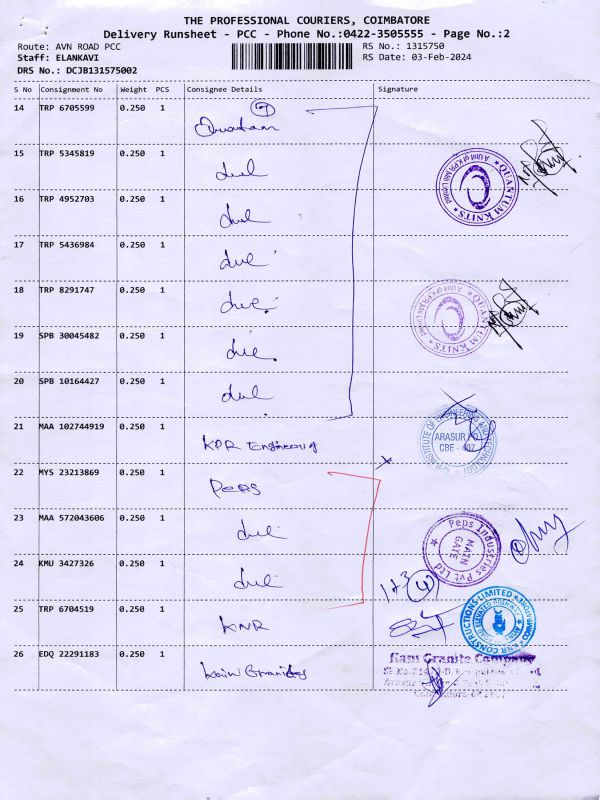 THE PROFESSIONAL COURIERS, COIMBATORE
Delivery Runsheet - PCC - Phone No.:0422-3505555 - Page No.:2
Route: AVN ROAD PCC
RS No.: 1315750
Staff: ELANKAVI
RS Date: 03-Feb-2024
DRS No.: DCJB131575002
S No Consignment No Weight PCS Consignee Details Signature
14 TRP 6705599 0.250 1
7
15 TRP 5345819 0.250 1
16 TRP 4952703 0.250 1
17 TRP 5436984 0.250 1
18 TRP 8291747 0.250 1
19 SPB 30045482 0.250 1
20 SPB 10164427 0.250 1
QUANTUM KNITS
QUANTUM KNITS
21 MAA 102744919 0.250 1 KPR Engineering
INSTITUTE OF ENGINEERING AND TECHNOLOGY
ARASUR PO
CBE - 407
22 MYS 23213869 0.250 1 PEPS
23 MAA 572043606 0.250 1
Peps Industries Pvt Ltd
MAIN GATE
24 KMU 3427326 0.250 1
1+3 4
25 TRP 6704519 0.250 1 KNR
KNR CONSTRUCTIONS LIMITED
26 EDQ 22291183 0.250 1
Granite Company